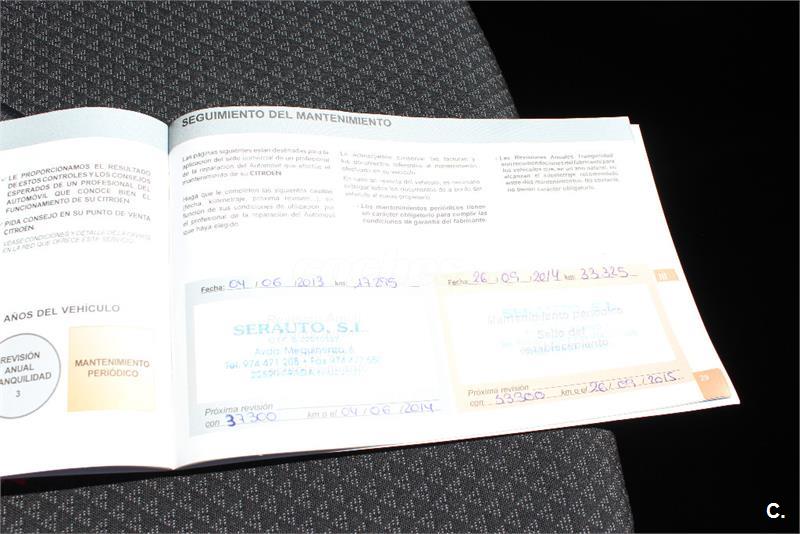 LE PROPORCIONAMOS EL RESULTADO
DE ESTOS CONTROLES Y LOS CONSEJOS
ESPERADOS DE UN PROFESIONAL DEL
AUTOMÓVIL QUE CONOCE BIEN EL
FUNCIONAMIENTO DE SU CITROËN.
PIDA CONSEJO EN SU PUNTO DE VENTA
CITROËN.
VEASE CONDICIONES Y DETALLE DE LA
EN LA RED QUE OFRECE ESTE SERVICIO
AÑOS DEL VEHÍCULO
REVISIÓN
ANUAL
TRANQUILIDAD
3
MANTENIMIENTO
PERIÓDICO
SEGUIMIENTO DEL MANTENIMIENTO
Las páginas siguientes están destinadas para la
aplicación del sello comercial de un profesional
de la reparación del Automóvil que efectúe el
mantenimiento de su CITROËN
Haga que le completen las siguientes casillas
(fecha, kilometraje, próxima revisión...), en
función de sus condiciones de utilización, por
el profesional de la reparación del Automóvil
que haya elegido.
Le aconsejamos conservar las facturas y
los documentos referentes al mantenimiento
efectuado en su vehículo.
En caso de reventa del vehículo, es necesario
entregar todos los documentos de a bordo del
vehículo al nuevo propietario.
- Los mantenimientos periódicos tienen
un carácter obligatorio para cumplir las
condiciones de garantía del fabricante.
- Las Revisiones Anuales Tranquilidad
son recomendaciones del fabricante para
los vehículos que, en un año natural, no
alcanzan el kilometraje recomendado
entre dos mantenimientos. No obstante,
no tienen carácter obligatorio.
Fecha: 04 / 06 / 2013 km: 17295
SERAUTO, S.L.
Avda. Mequinenza, 6
Tel. 974 471 208 • Fax 974
Próxima revisión
con 37300 km o el 04 / 06 / 2014
Fecha: 26 / 09 / 2014 km: 33325
SERAUTO, S.L.
Mantenimiento periódico
Sello del
establecimiento
Próxima revisión
con 53300 km o el 26 / 09 / 2015
III
29
C.